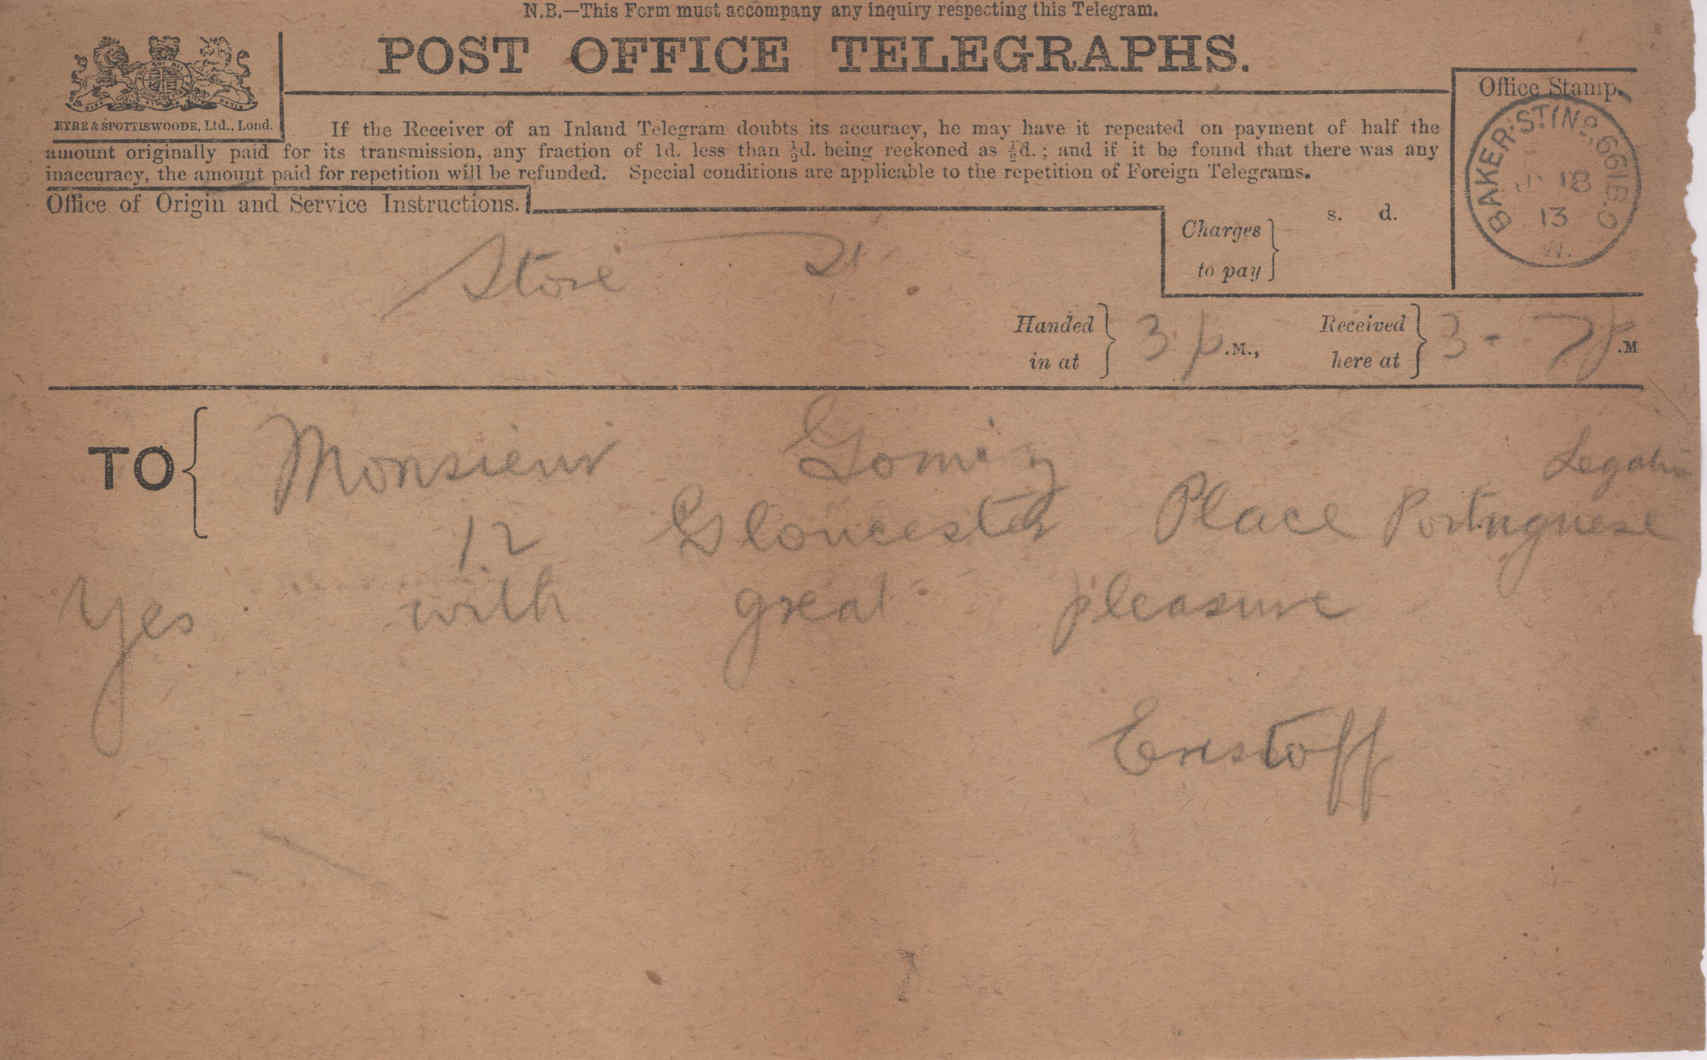 N.B.—This Form must accompany any inquiry respecting this Telegram.
POST OFFICE TELEGRAPHS.
EYRE & SPOTTISWOODE, Ltd., Lond.
If the Receiver of an Inland Telegram doubts its accuracy, he may have it repeated on payment of half the
amount originally paid for its transmission, any fraction of 1d. less than ½d. being reckoned as ½d.; and if it be found that there was any
inaccuracy, the amount paid for repetition will be refunded. Special conditions are applicable to the repetition of Foreign Telegrams.
Office Stamp.
BAKER ST
18
13
Office of Origin and Service Instructions.
Store St
Charges to pay } s. d.
Handed in at } 3 p.M.,
Received here at } 3 - 7 p.M
TO { Monsieur Gomez
Legation
12 Gloucester Place Portuguese
Yes with great pleasure